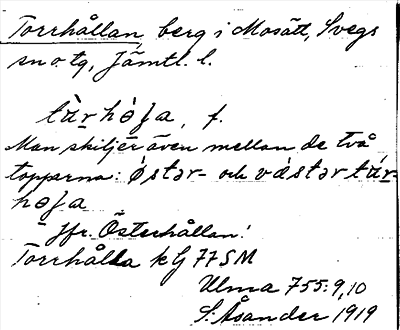 Torrhållan, berg i Mosätt, Svegs
sn o tg, Jämtl. l.
tùṟhǿla, f.
Man skiljer även mellan de två
topparna: ǿstər- och véstərtúṟ-
hǿla
Jfr. Österhållan!
Torrhålla kG 77SM
Ulma 755:9,10
S. Åsander 1919